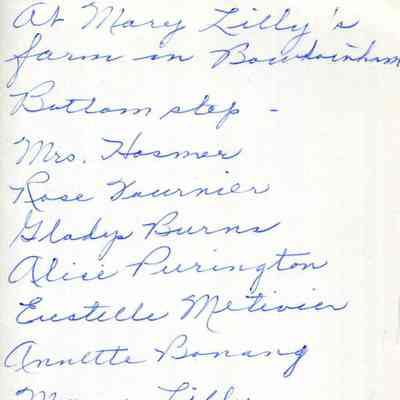 At Mary Lilly's
farm in Bowdoinham
Bottom step -
Mrs. Hosmer
Rose Fournier
Gladys Burns
Alice Purington
Eustelle Metivier
Annette Bonang
Mary Lilly